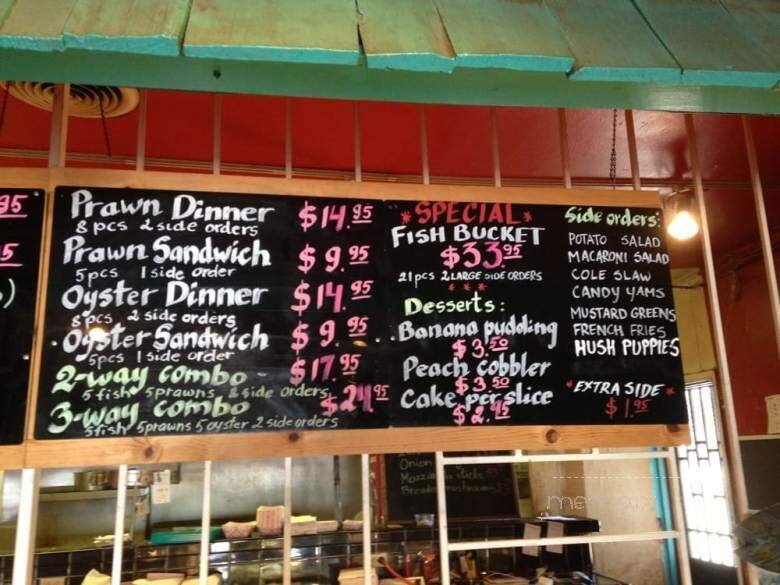 95
5
)
Prawn Dinner $14.95
8 pcs 2 side orders
Prawn Sandwich $9.95
5 pcs 1 side order
Oyster Dinner $14.95
8 pcs 2 side orders
Oyster Sandwich $9.95
5 pcs 1 side order
2-way combo - $17.95
5 fish 5 prawns, 2 side orders
3-way combo $24.95
5 fish 5 prawns 5 oyster 2 side orders
* SPECIAL *
FISH BUCKET
$33.95
21 pcs 2 LARGE SIDE ORDERS
* * *
Desserts:
Banana pudding
$3.50
Peach cobbler
$3.50
Cake per slice
$2.95
Side orders:
POTATO SALAD
MACARONI SALAD
COLE SLAW
CANDY YAMS
MUSTARD GREENS
FRENCH FRIES
HUSH PUPPIES
* EXTRA SIDE *
$1.95
Onion